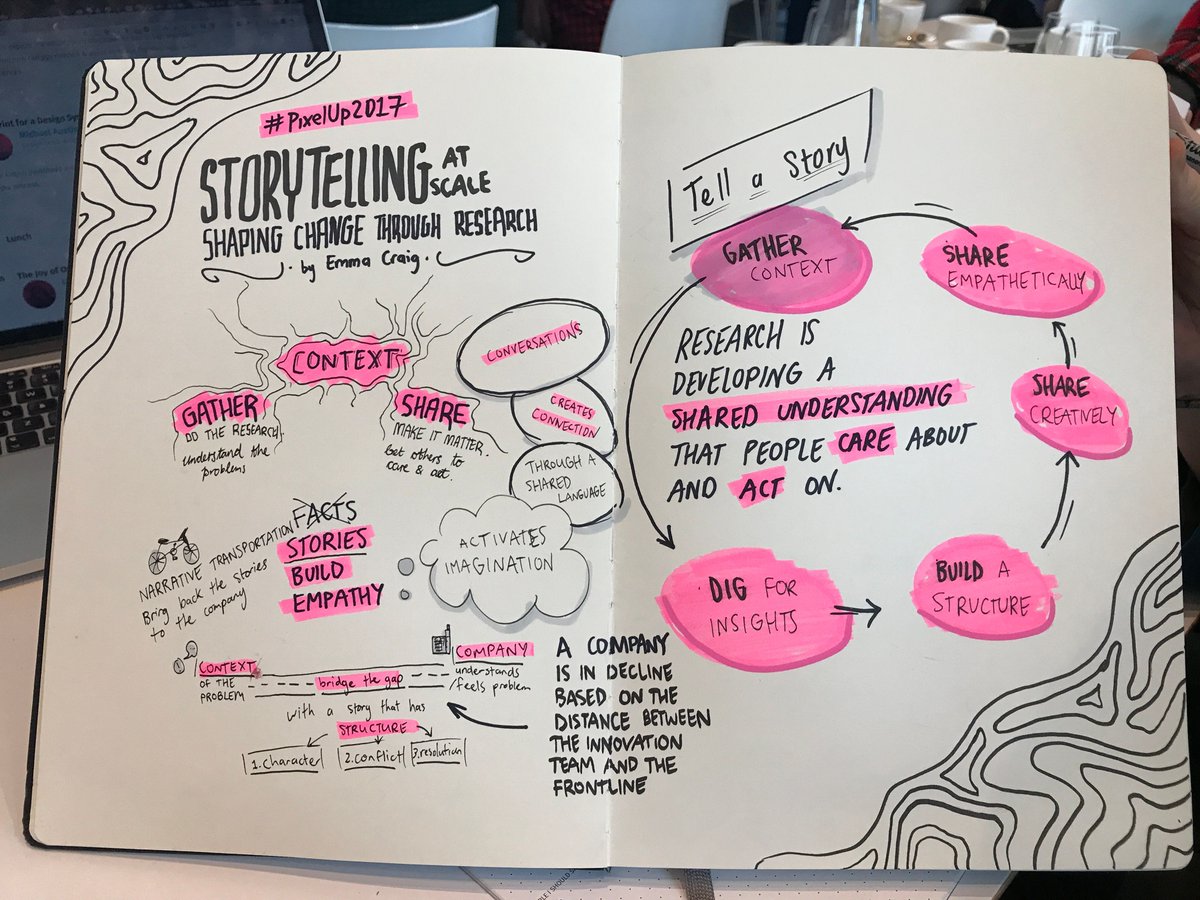 #PixelUp2017
STORYTELLING AT
SCALE
SHAPING CHANGE THROUGH RESEARCH
· by Emma Craig ·
CONTEXT
GATHER
DO THE RESEARCH.
understand the
problems
SHARE
MAKE IT MATTER.
Get others to
care & act.
CONVERSATIONS
CREATES
CONNECTION
THROUGH A
SHARED
LANGUAGE
NARRATIVE TRANSPORTATION
Bring back the stories
to the company
FACTS
STORIES
BUILD
EMPATHY
ACTIVATES
IMAGINATION
CONTEXT
OF THE
PROBLEM
bridge the gap
COMPANY
understands
/feels problem
with a story that has
STRUCTURE
1.character
2.conflict
3.resolution
A COMPANY
IS IN DECLINE
BASED ON THE
DISTANCE BETWEEN
THE INNOVATION
TEAM AND THE
FRONTLINE
Tell a Story
GATHER
CONTEXT
SHARE
EMPATHETICALLY
RESEARCH IS
DEVELOPING A
SHARED UNDERSTANDING
THAT PEOPLE CARE ABOUT
AND ACT ON.
SHARE
CREATIVELY
DIG FOR
INSIGHTS
BUILD A
STRUCTURE
Lunch